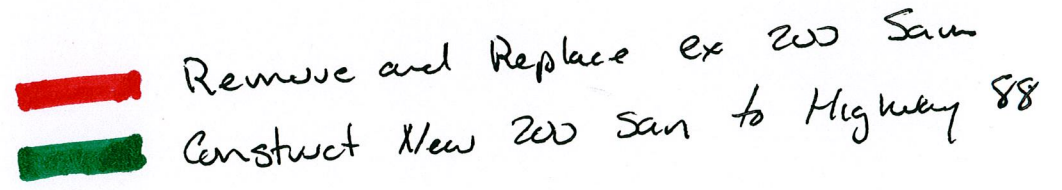 Remove and Replace ex 200 San
Construct New 200 San to Highway 88